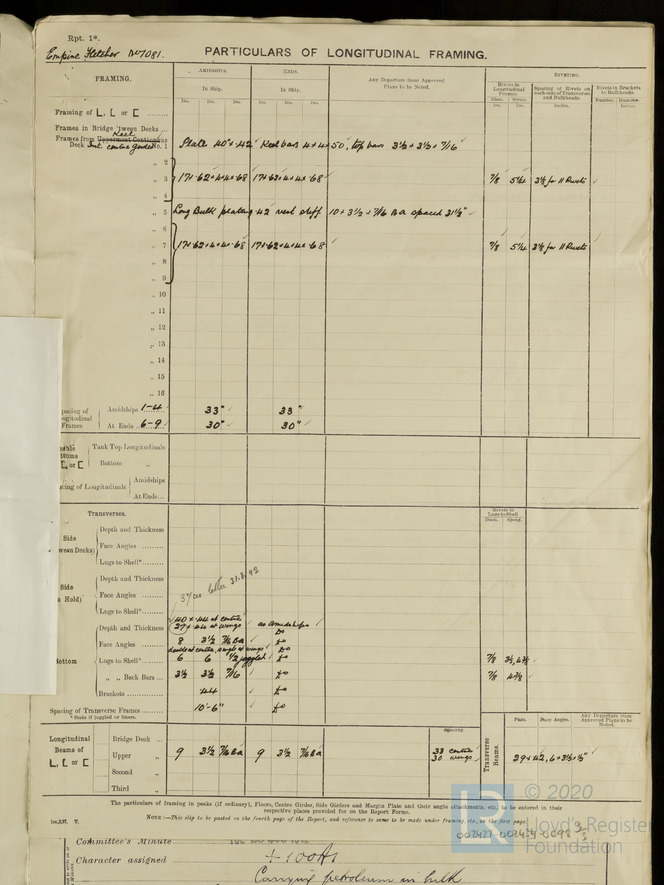 Rpt. 1*.
Empire Fletcher No 7081.
PARTICULARS OF LONGITUDINAL FRAMING.
FRAMING.
AMIDSHIPS.
ENDS.
Any Departure from Approved Plans to be Noted.
RIVETING.
In Ship.
In Ship.
Rivets in Longitudinal Frames.
Spacing of Rivets on each side of Transverses and Bulkheads.
Rivets in Brackets to Bulkheads.
Framing of L, [ or [
Frames in Bridge 'tween Decks
Frames from Uppermost Continuous
Keel
Deck Int. centre girder No. 1 Plate 40 × .42 Keel bars 4 × 4 × .50, top bars 3½ × 3½ × 7/16
„ 2
„ 3 17 × .62 × 4 × 4 × .68 17 × .62 × 4 × 4 × .68 7/8
„ 4
„ 5 Long Bulk plating .42 vert stiff 10 × 3½ × 7/16 BA spaced 31½"
„ 6
„ 7 17 × .62 × 4 × 4 × .68 17 × .62 × 4 × 4 × .68 7/8
„ 8
„ 9
„ 10
„ 11
„ 12
„ 13
„ 14
„ 15
„ 16
Amidships 1-4 33" 33"
At Ends 6-9 30" 30"
Tank Top Longitudinals
Bottom „
Amidships
At Ends
Transverses.
Rivets in Lugs to Shell
Diam. Spcng.
Side
Depth and Thickness
Face Angles
Lugs to Shell*
Side
Depth and Thickness
Face Angles
Lugs to Shell*
letter 31.3.42
40 × .44 at centre
Depth and Thickness 37 × .44 at wings as Amidships
Face Angles 8 3½ 7/16 BA Do
double at centre, single at wings Do
Lugs to Shell* 6 6 ½ joggled Do 7/8
„ „ Back Bars 3½ 3½ 7/16 Do 7/8
Brackets .44 Do
Spacing of Transverse Frames 10'-6" Do
* State if joggled or liners.
Spacing.
Plate.
Face Angles.
Any Departure from Approved Plans to be Noted.
Longitudinal Beams of L, [ or [
Bridge Deck
Upper „ 9 3½ 7/16 BA 9 3½ 7/16 BA 33 centre 30 wings
Transverse Beams.
29 × .42, 6 × 3½ × ½"
Second „
Third „
The particulars of framing in peaks (if ordinary), Floors, Centre Girder, Side Girders and Margin Plate and their angle attachments, etc., to be entered in their
respective places provided for on the Report Forms.
NOTE:—This slip to be pasted in the fourth page of the Report, and reference to same to be made under framing, etc., on the first page.
© 2020
Lloyd's Register
Foundation
002427-002434-0098 3/3
Committee's Minute
Character assigned +100A1
Carrying petroleum in bulk